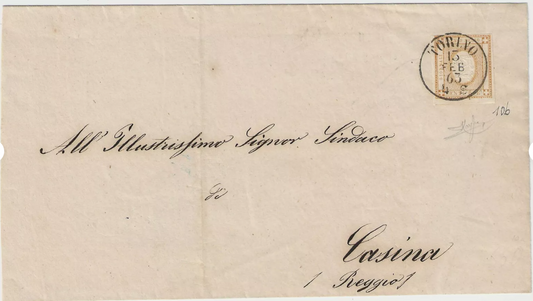 TORINO
15
FEB
63
4 S
106
All' Illustrissimo Signor Sindaco
di
Casina
/ Reggio /